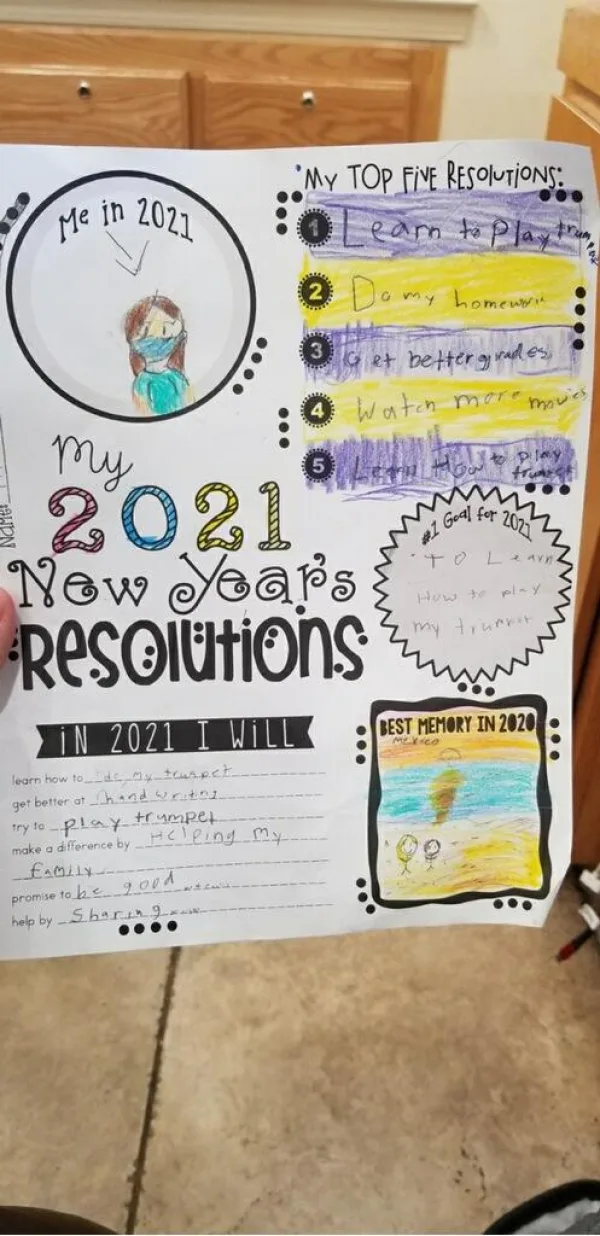 Me in 2021
My TOP FiVE RESOLUTiONS:
1 Learn to Play trumpet
2 Do my homework
3 Get better grades
4 Watch more movies
5 Learn How to play
trumpet
My
2021
New Year's
RESOLUTIONS
#1 Goal for 2021
To Learn
How to play
my trumpet
iN 2021 I WiLL
learn how to my trumpet
get better at
try to play trumpet
make a difference by Helping My
family
promise to be good
help by Sharing
BEST MEMORY IN 2020
Mexico
Name: